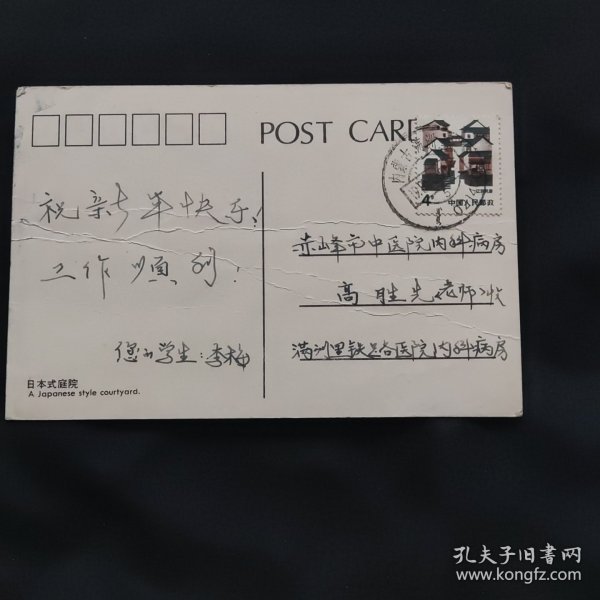 POST CARD
4分
中国人民邮政
祝新年快乐!
工作顺利!
您的学生:李梅
赤峰市中医院内科病房
高胜先(老师)收
满洲里铁路医院内科病房
日本式庭院
A Japanese style courtyard.
孔夫子旧书网
www.kongfz.com